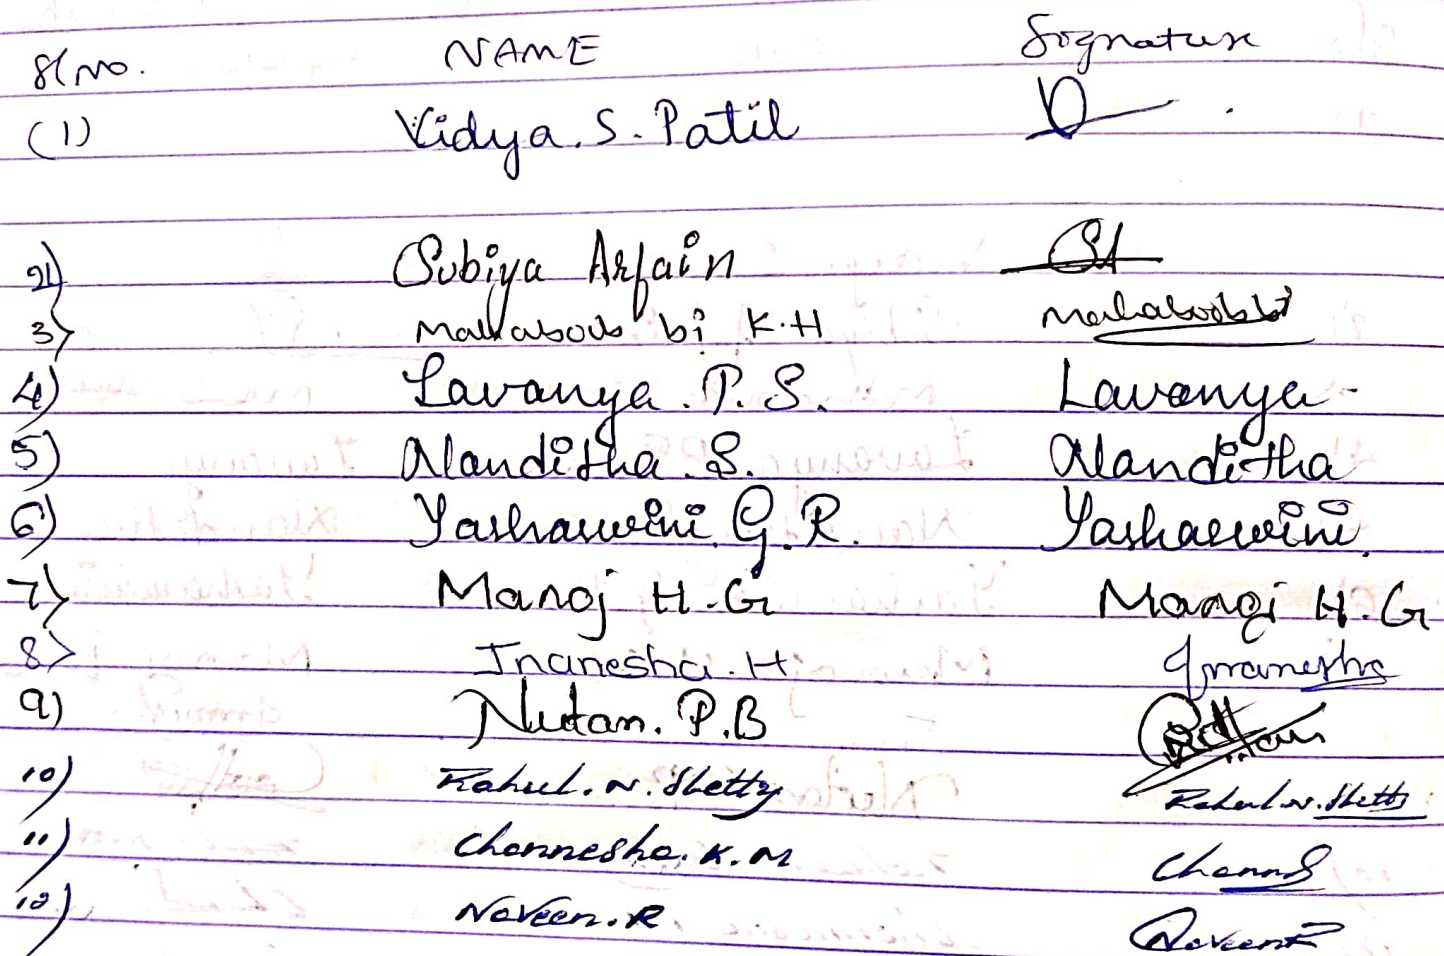 Sl No. NAME Signature
(1) Vidya. S. Patil
2) Subiya Arfain SA
3) Mahaboob bi K.H Mahaboobbi
4) Lavanya. P. S. Lavanya
5) Nanditha. S. Nanditha
6) Yashaswini. G. R. Yashaswini.
7) Manoj H.G Manoj H.G
8) Jnanesha. H Jnanesha
9) Nutan. P.B
10) Rahul. N. Shetty Rahul. N. Shetty
11) Channesha. K. M Channs
12) Naveen. R Naveen R